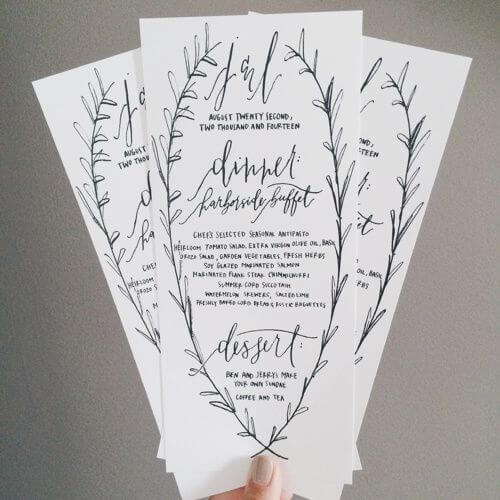 j & l
AUGUST TWENTY SECOND,
TWO THOUSAND AND FOURTEEN
dinner:
harborside buffet
CHEF'S SELECTED SEASONAL ANTIPASTO
HEIRLOOM TOMATO SALAD, EXTRA VIRGIN OLIVE OIL, BASIL
ORZO SALAD, GARDEN VEGETABLES, FRESH HERBS
SOY GLAZED MARINATED SALMON
MARINATED FLANK STEAK CHIMMICHURRI
SUMMER CORN SUCCOTASH
WATERMELON SKEWERS, SALTED LIME
FRESHLY BAKED CORN BREAD & RUSTIC BAGUETTES
dessert:
BEN AND JERRY'S MAKE
YOUR OWN SUNDAE
COFFEE AND TEA
j &
AUGUST TWENT
TWO THOUSAND
COND,
FOURTEEN